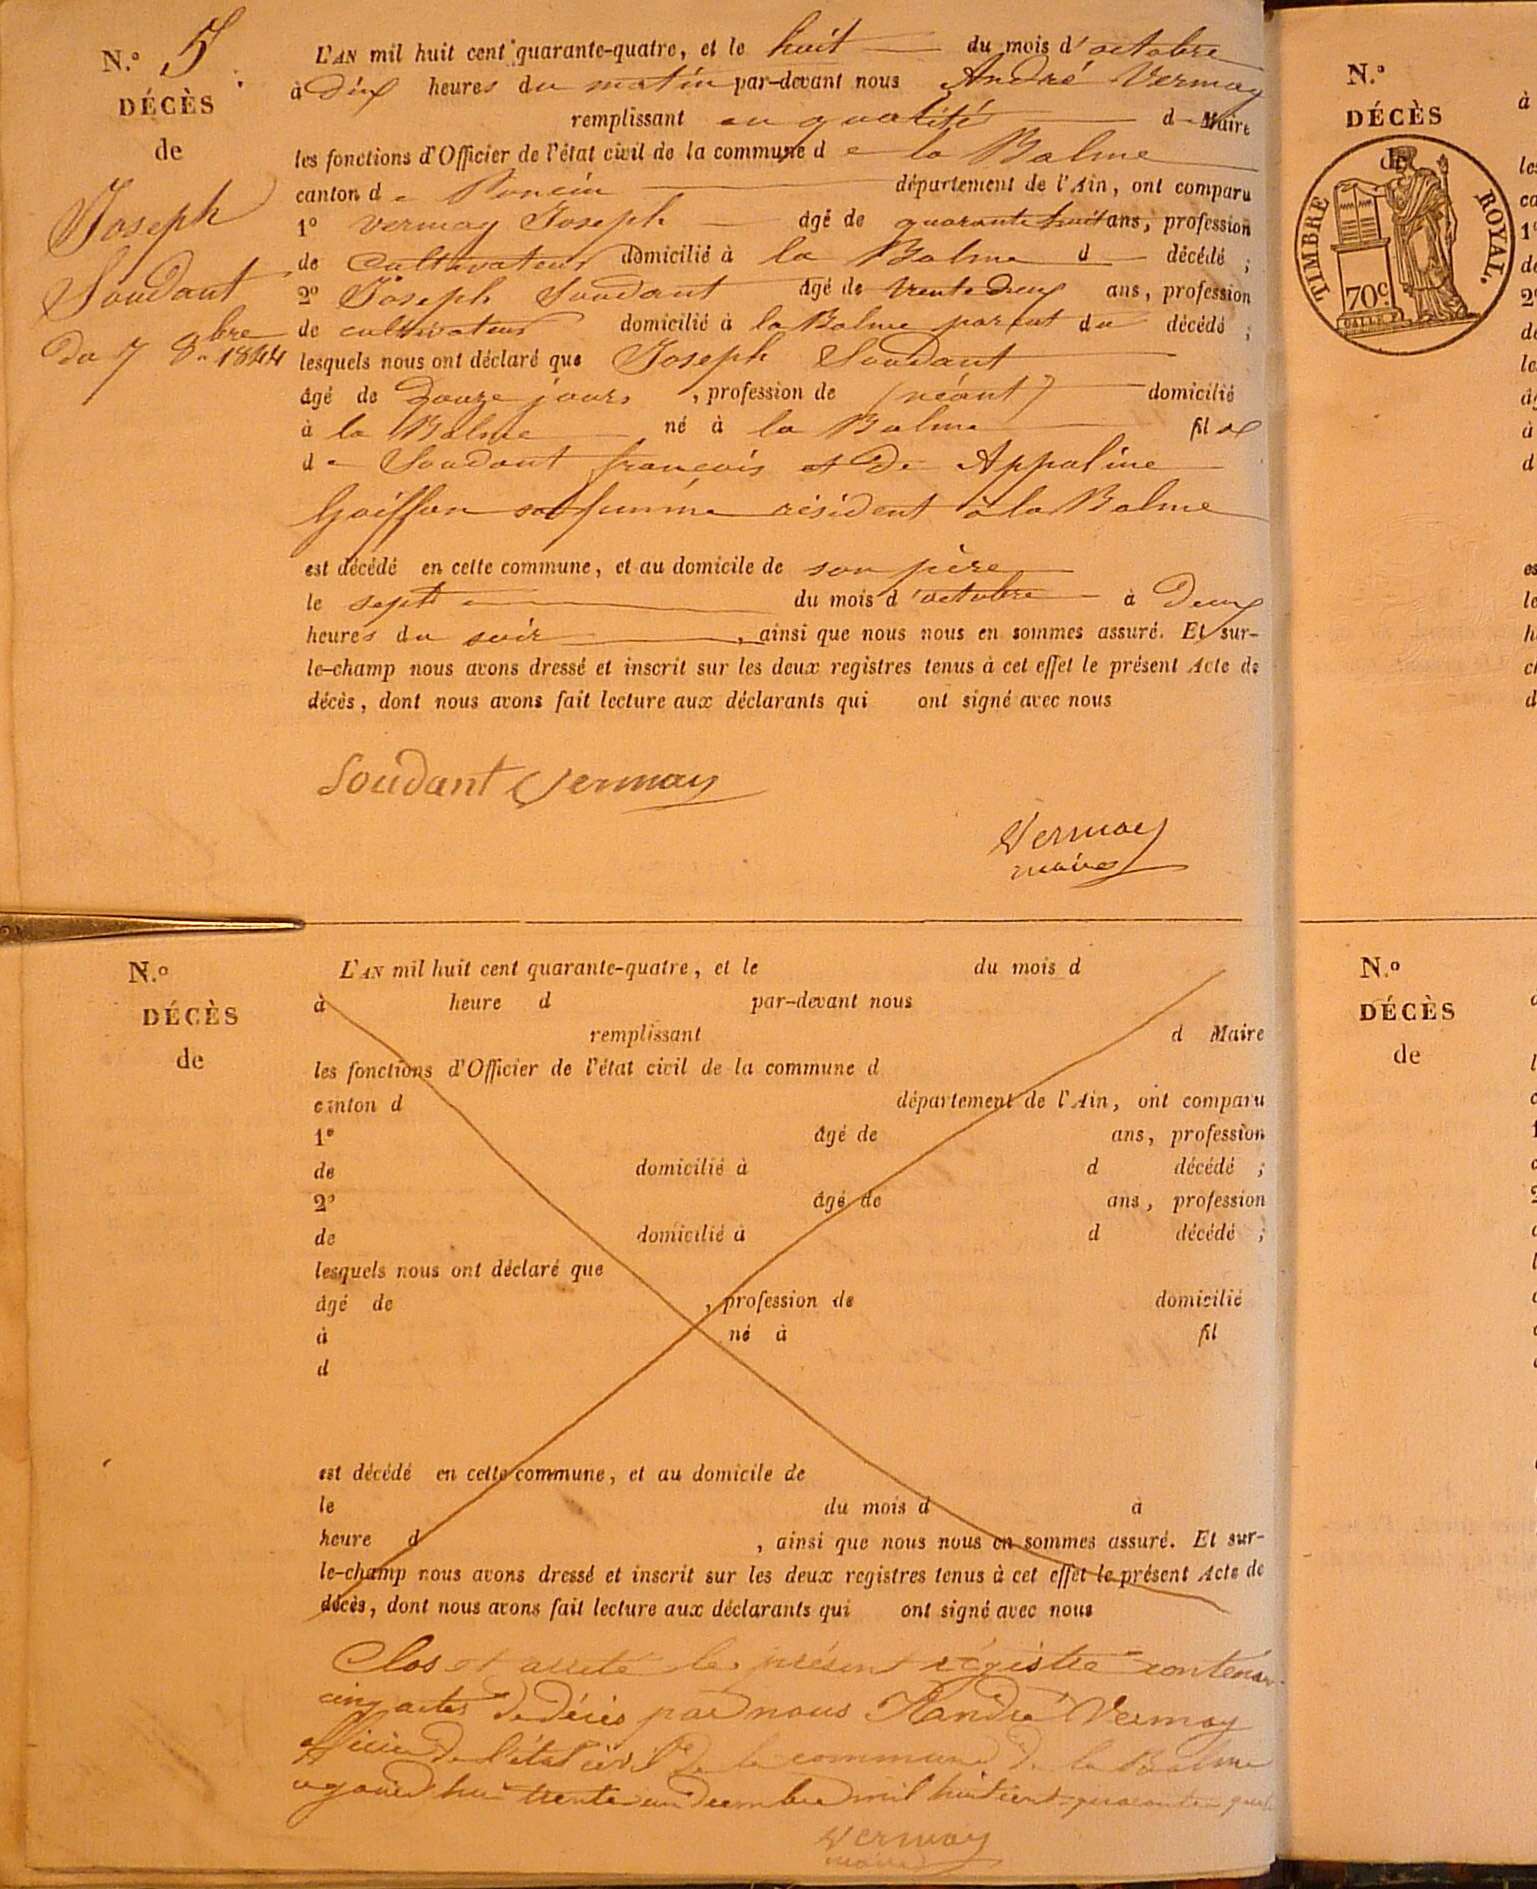 N.° 5
DÉCÈS
de
Joseph
Soudant
du 7 8.bre 1844
L'AN mil huit cent quarante-quatre, et le huit du mois d'octobre
à dix heures du matin par-devant nous André Vermay
remplissant en qualité d Maire
les fonctions d'Officier de l'état civil de la commune de la Balme
canton de Poncin département de l'Ain, ont comparu
1° vermay Joseph âgé de quarante huit ans, profession
de Cultivateur domicilié à la Balme d décédé ;
2° Joseph Soudant âgé de trente deux ans, profession
de cultivateur domicilié à la Balme parent du décédé ;
lesquels nous ont déclaré que Joseph Soudant
âgé de Douze jours, profession de (néant) domicilié
à la Balme né à la Balme fils
de Soudant françois et De Appoline
Goiffon sa femme résident à la Balme
est décédé en cette commune, et au domicile de son père
le sept du mois d'octobre à Deux
heures du soir, ainsi que nous nous en sommes assuré. Et sur-
le-champ nous avons dressé et inscrit sur les deux registres tenus à cet effet le présent Acte de
décès, dont nous avons fait lecture aux déclarants qui ont signé avec nous
Soudant Vermay
Vermay
maire
N.°
DÉCÈS
de
L'AN mil huit cent quarante-quatre, et le du mois d
à heure d par-devant nous
remplissant d Maire
les fonctions d'Officier de l'état civil de la commune d
canton d département de l'Ain, ont comparu
1° âgé de ans, profession
de domicilié à d décédé ;
2° âgé de ans, profession
de domicilié à d décédé ;
lesquels nous ont déclaré que
âgé de , profession de domicilié
à né à fil
d
est décédé en cette commune, et au domicile de
le du mois d à
heure d , ainsi que nous nous en sommes assuré. Et sur-
le-champ nous avons dressé et inscrit sur les deux registres tenus à cet effet le présent Acte de
décès, dont nous avons fait lecture aux déclarants qui ont signé avec nous
Clos et arreté le présent régistre contenant
cinq actes de décès par nous André Vermay
officier de l'état civil de la commune de la Balme
trente un décembre mil huit cent quarante quatre
Vermay
maire
N.°
DÉCÈS
de
TIMBRE ROYAL.
70c.
N.°
DÉCÈS
de